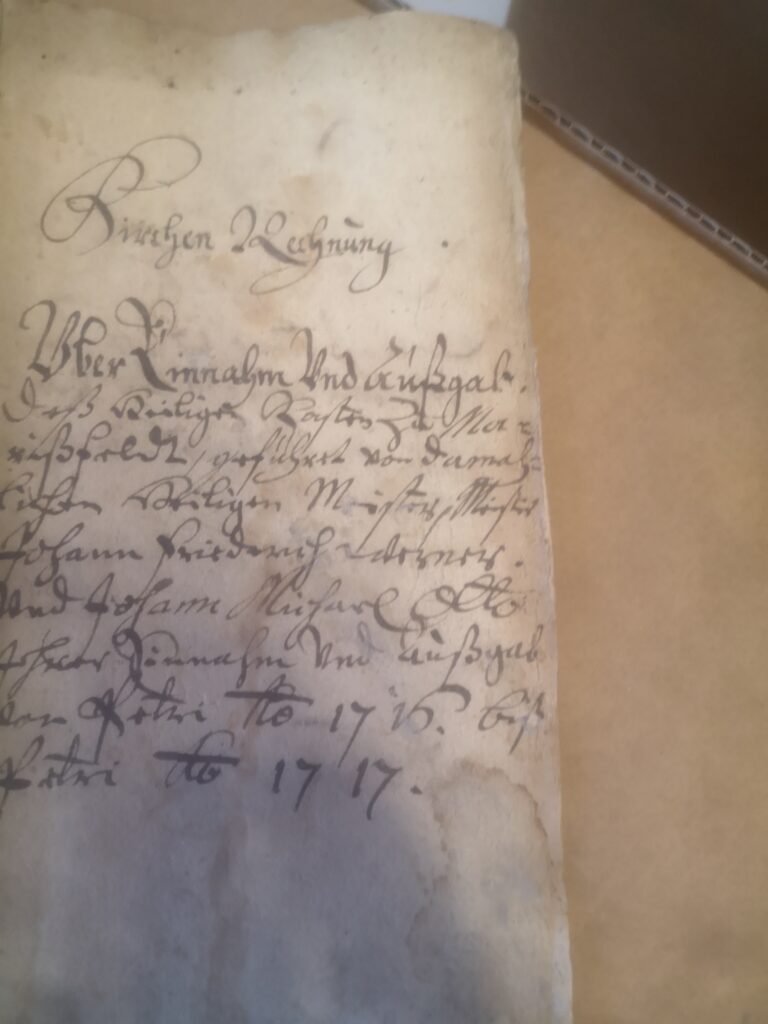 Kirchen Rechnung.
Vber Einnahm Vnd Außgab.
Deß Heiligen Kasten Zu Ma-
rißfeldt, geführet von damah-
lichen Heiligen Meister, Meister
Johann Friederich Werner.
Vnd Johann Michael Otto
Ihrer Einnahm Vnd Außgab
von Petri Ao 1716. biß
Petri Ao 1717.